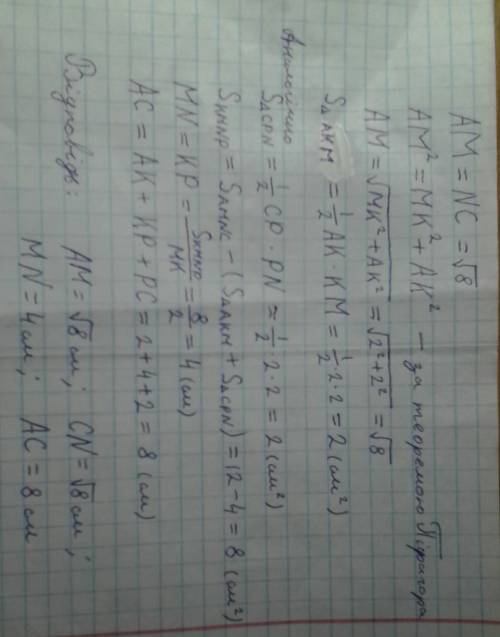 AM = NC = √8
AM² = MK² + AK² – за теоремою Піфагора
AM = √MK² + AK² = √2² + 2² = √8
S∆AKM = 1/2 AK · KM = 1/2 · 2 · 2 = 2 (см²)
Аналогічно
S∆CPN = 1/2 CP · PN = 1/2 · 2 · 2 = 2 (см²)
SKMNP = SAMNC – (S∆AKM + S∆CPN) = 12 – 4 = 8 (см²)
MN = KP = SKMNP/MK = 8/2 = 4 (см)
AC = AK + KP + PC = 2 + 4 + 2 = 8 (см)
Відповідь: AM = √8 см; CN = √8 см;
MN = 4 см; AC = 8 см